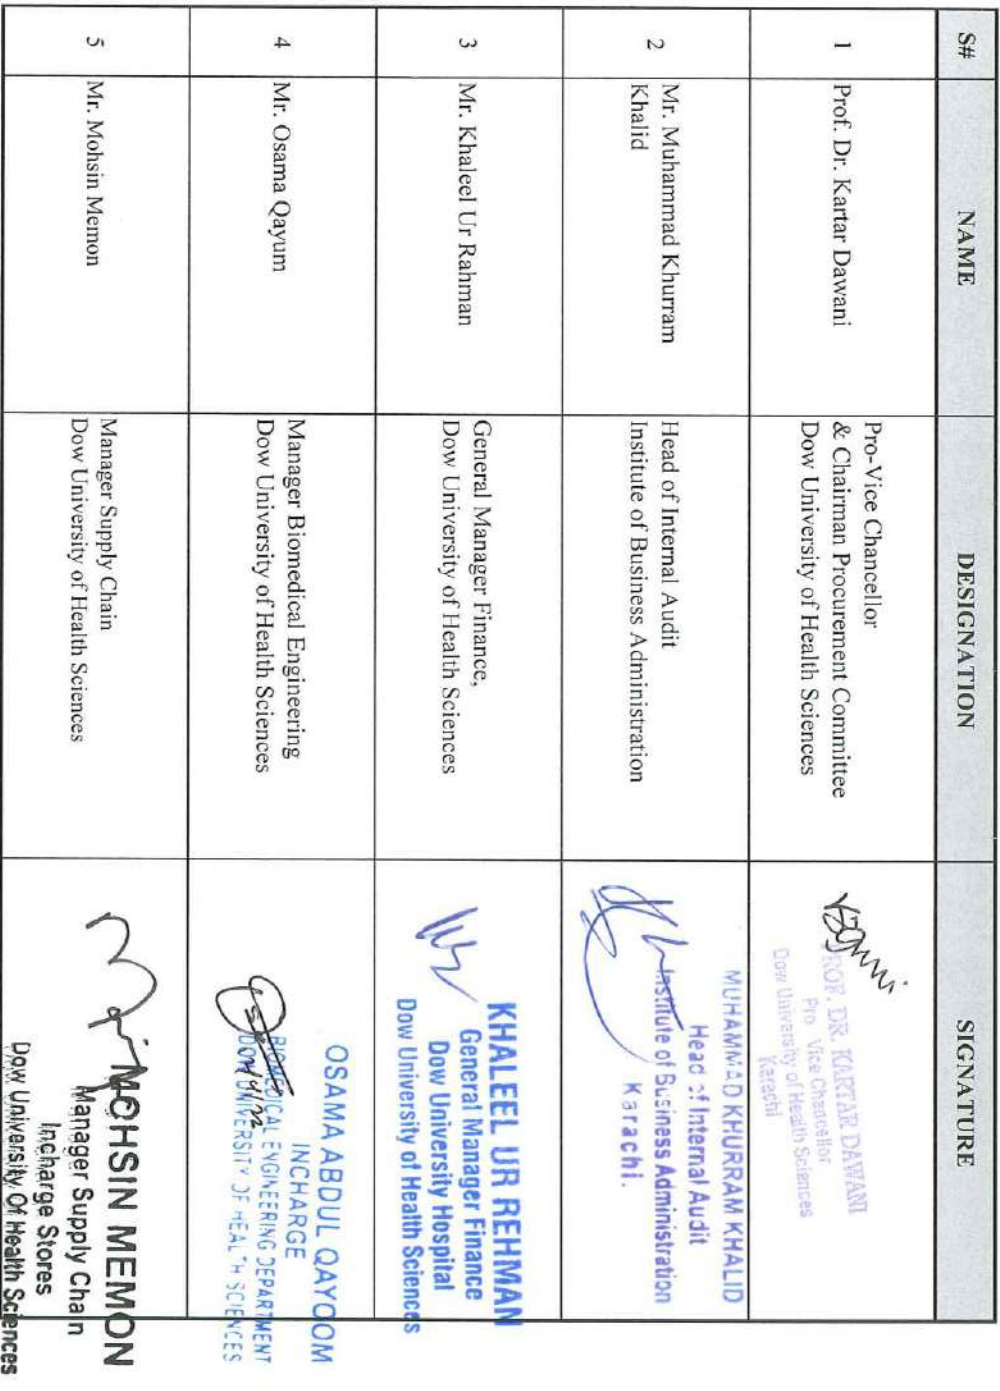 S# NAME DESIGNATION SIGNATURE
1 Prof. Dr. Kartar Dawani
Pro-Vice Chancellor
& Chairman Procurement Committee
Dow University of Health Sciences
PROF. DR. KARTAR DAWANI
Pro Vice Chancellor
Dow University of Health Sciences
Karachi
2 Mr. Muhammad Khurram
Khalid
Head of Internal Audit
Institute of Business Administration
MUHAMMAD KHURRAM KHALID
Head of Internal Audit
Institute of Business Administration
Karachi.
3 Mr. Khaleel Ur Rahman
General Manager Finance,
Dow University of Health Sciences
KHALEEL UR REHMAN
General Manager Finance
Dow University Hospital
Dow University of Health Sciences
4 Mr. Osama Qayum
Manager Biomedical Engineering
Dow University of Health Sciences
OSAMA ABDUL QAYOOM
INCHARGE
BIOMEDICAL ENGINEERING DEPARTMENT
DOW UNIVERSITY OF HEALTH SCIENCES
5 Mr. Mohsin Memon
Manager Supply Chain
Dow University of Health Sciences
MOHSIN MEMON
Manager Supply Chain
Incharge Stores
Dow University Of Health Sciences